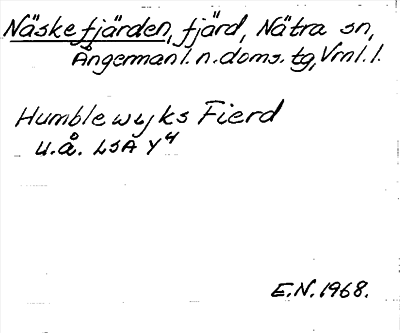 Näskefjärden, fjärd, Nätra sn,
Ångermanl. n. doms. tg, Vrnl. l.
Humblewyks Fierd
u.å. LSA Y4
E.N. 1968.